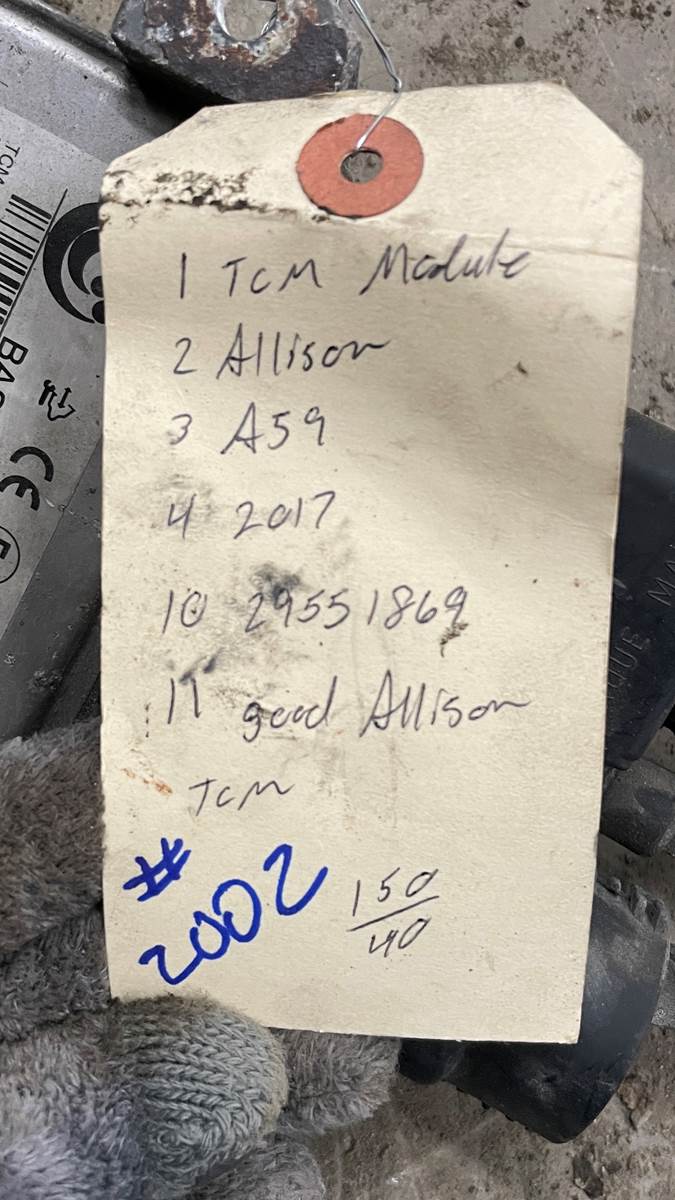 1 TCM Module
2 Allison
3 A59
4 2017
10 29551869
11 good Allison
TCM
#
2002
150
40
TCM
CE